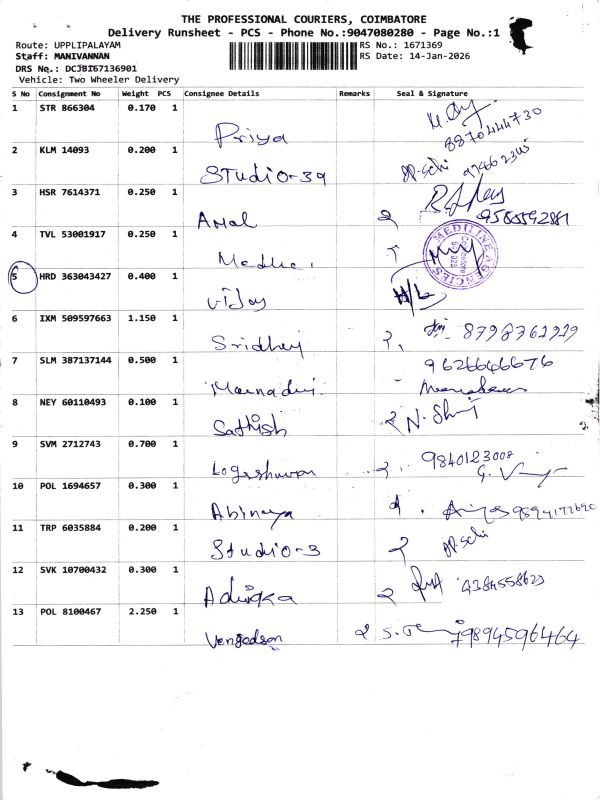 THE PROFESSIONAL COURIERS, COIMBATORE
Delivery Runsheet - PCS - Phone No.:9047080280 - Page No.:1
Route: UPPLIPALAYAM
RS No.: 1671369
Staff: MANIVANNAN
RS Date: 14-Jan-2026
DRS No.: DCJBI67136901
Vehicle: Two Wheeler Delivery
S No Consignment No Weight PCS Consignee Details Remarks Seal & Signature
1 STR 866304 0.170 1 Priya 8870444730
2 KLM 14093 0.200 1 STUDIO-39
3 HSR 7614371 0.250 1 Amal
4 TVL 53001917 0.250 1 MEDILINE AGENCIES
5 HRD 363043427 0.400 1 Vijay H/L
6 IXM 509597663 1.150 1 Sridhey 8798361929
7 SLM 387137144 0.500 1 9626646676
8 NEY 60110493 0.100 1 Sathish
9 SVM 2712743 0.700 1 Logeshwaran 9840123008
10 POL 1694657 0.300 1 Abinaya
11 TRP 6035884 0.200 1 Studio-3
12 SVK 10700432 0.300 1
13 POL 8100467 2.250 1 79894596464